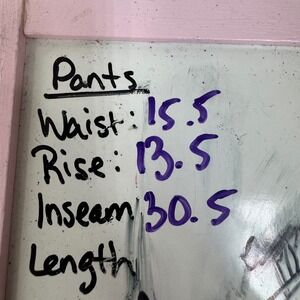 Pants
Waist: 15.5
Rise: 13.5
Inseam 30.5
Length